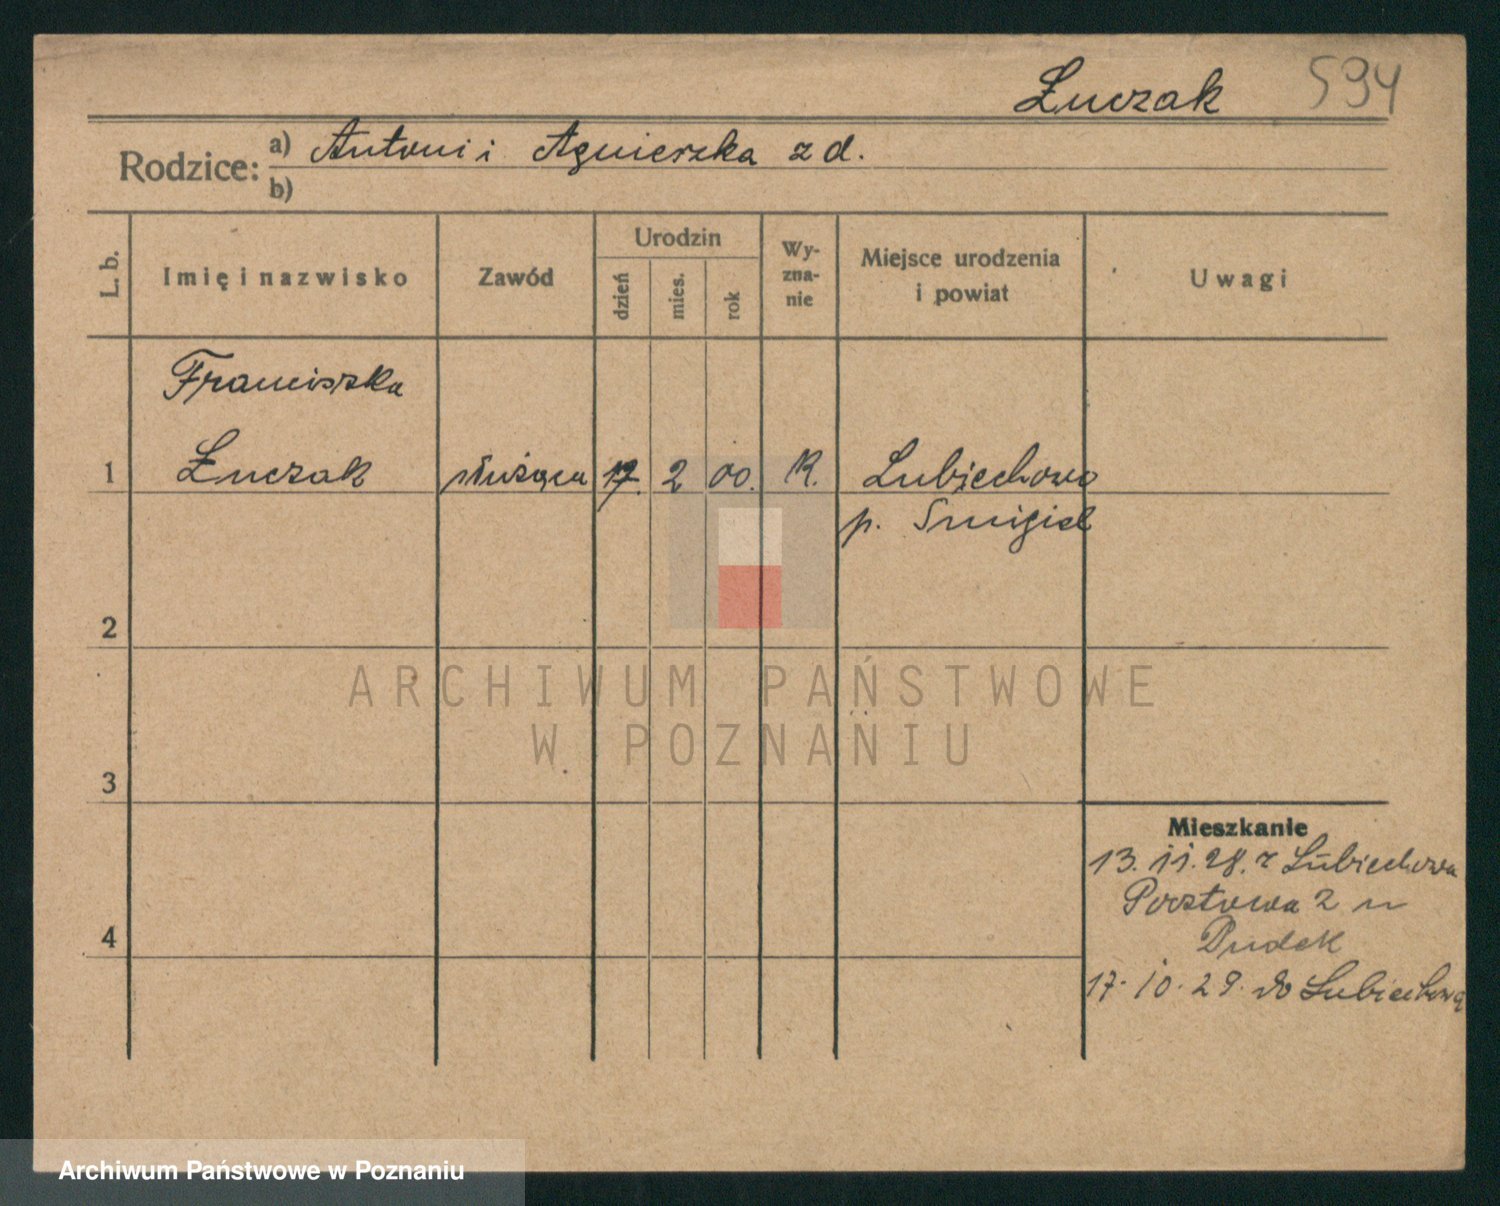 Łuczak 594
Rodzice: a) Antoni i Agnieszka z d.
b)
L. b. Imię i nazwisko Zawód Urodzin dzień mies. rok Wy-zna-nie Miejsce urodzenia i powiat Uwagi
Franciszka
1 Łuczak służąca 17. 2 00. R. Lubiechowo
p. Śmigiel
2
ARCHIWUM PAŃSTWOWE
W POZNANIU
3
Mieszkanie
13. 11. 28. z Lubiechowa
Pocztowa 2 u
4 Dudek
17. 10. 29. do Lubiechowa
Archiwum Państwowe w Poznaniu